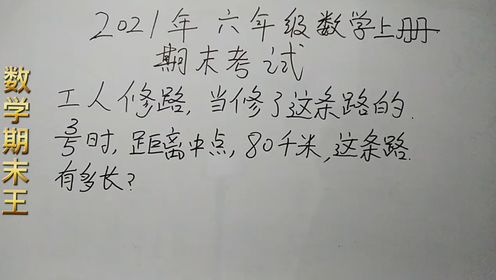 2021年六年级数学上册
期末考试
工人修路,当修了这条路的
3/5时,距离中点,80千米,这条路
有多长?
数学期末王